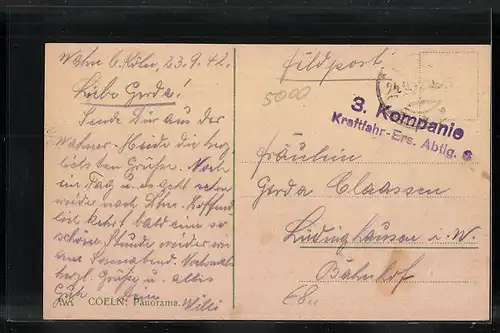 Wahn b. Köln, 23.9.42.
Liebe Gerda!
Sende Dir aus der
Wahner-Heide die herz
lichsten Grüße. Noch
ein Tag u. es geht schon
wieder nach Hoffent
lich kehrt bald eine so
schöne Stunde wieder wie
am Sonnabend. Nochmals
herzl. Grüße u. alles
Gute Dein Willi
COELN: Panorama.
Feldpost!
5000
3. Kompanie
Kraftfahr-Ers. Abtlg. 6
Fräulein
Gerda Claassen
Lüdinghausen i. W.
Bahnhof